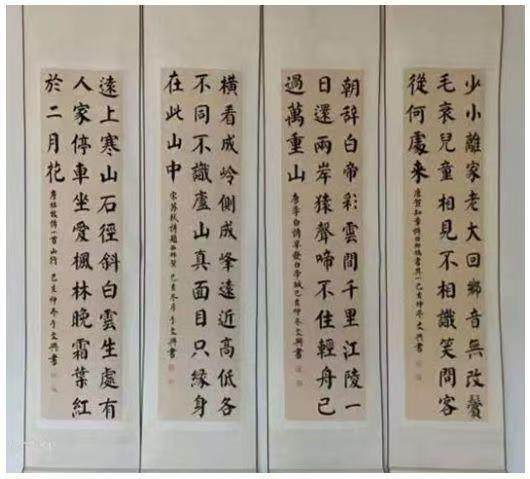 少小離家老大回鄉音無改鬢
毛衰兒童相見不相識笑問客
從何處来
唐賀知章詩回鄉偶書其一己亥仲冬文興書
朝辞白帝彩雲間千里江陵一
日還兩岸猿聲啼不住輕舟已
過萬重山
唐李白詩早發白帝城己亥仲冬文興書
橫看成岭側成峰遠近高低各
不同不識廬山真面目只緣身
在此山中
宋苏轼詩題西林壁己亥冬月于文興書
遠上寒山石徑斜白雲生處有
人家停車坐愛楓林晚霜葉紅
於二月花
唐杜牧詩一首山行己亥仲冬于文興書